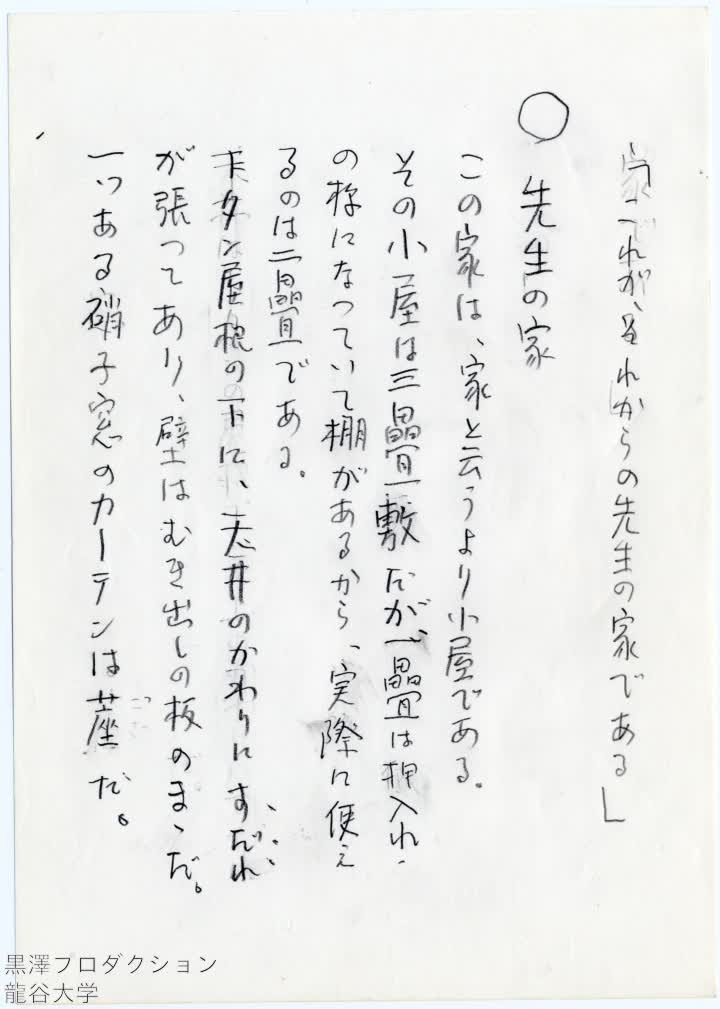 「これが、それからの先生の家である」
○ 先生の家
この家は、家と云うより小屋である。
その小屋は三疊敷だが一疊は押入れ
の様になっていて棚があるから、実際に使え
るのは二疊である。
トタン屋根の下に、天井のかわりにすだれ
が張ってあり、壁はむき出しの板のまゝだ。
一つある硝子窓のカーテンは蓙だ。
黒澤プロダクション
龍谷大学